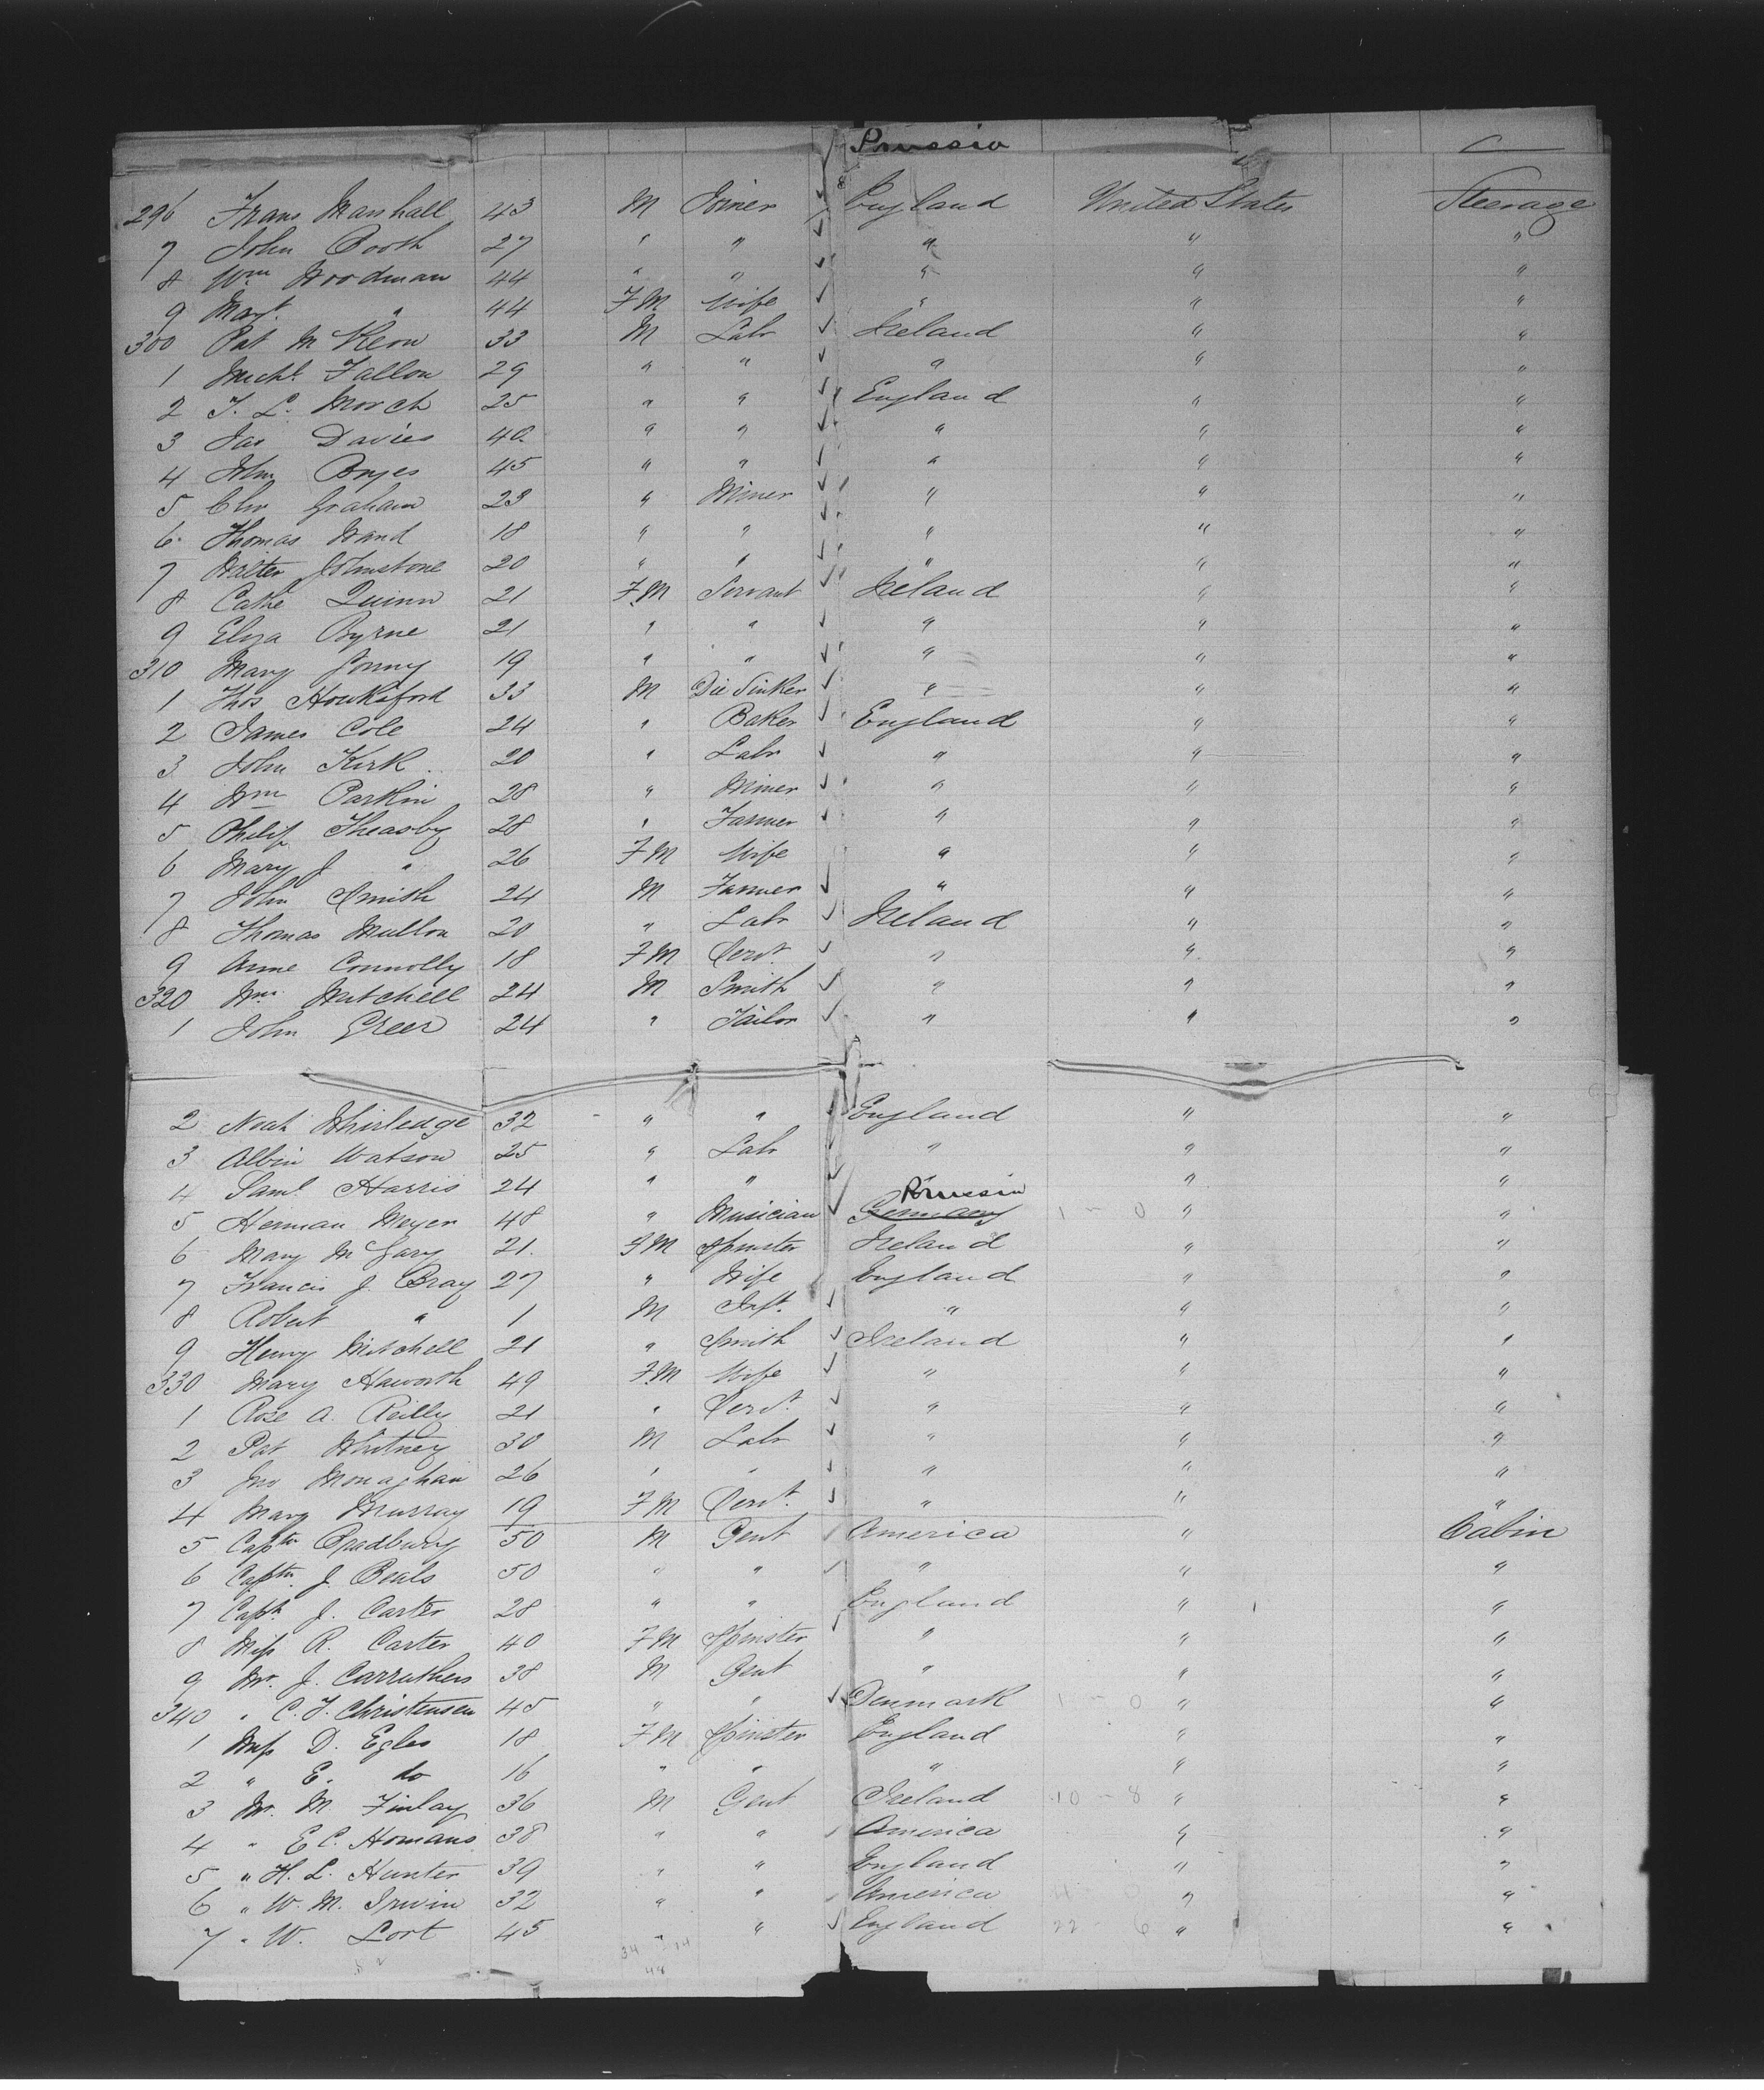 Prussia
296 Frans Marshall 43 M Joiner England United States Steerage
7 John Booth 27 " " " " "
8 Wm Woodman 44 " " " " "
9 Margt. " 44 FM Wife " " "
300 Pat McKeon 33 M Labr Ireland " "
1 Michl. Fallon 29 " " " " "
2 T. L. March 25 " " England " "
3 Jas Davies 40 " " " " "
4 John 45 " " " " "
5 Graham 23 " Miner " " "
6 Thomas Wand 18 " " " " "
7 Walter Johnstone 20 " " " " "
8 Cathe Quinn 21 FM Servant Ireland " "
9 Eliza Byrne 21 " " " " "
310 Mary 19 " " " " "
1 Thos 33 M Die Sinker " " "
2 James Cole 24 " Baker England " "
3 John Kirk 20 " Labr " " "
4 Wm Parkin 28 " Miner " " "
5 Philip Theasby 28 " Farmer " " "
6 Mary J " 26 FM Wife " " "
7 John Smith 24 M Farmer " " "
8 Thomas Mullon 20 " Labr Ireland " "
9 Anne Connolly 18 FM Servt. " " "
320 Wm Mitchell 24 M Smith " " "
1 John Greer 24 " Tailor " " "
2 Noah Whirledge 32 " " England " "
3 Albin Watson 25 " Labr " " "
4 Saml. Harris 24 " " " " "
Prussia
5 Herman Meyer 48 " Musician Germany 1 - 0 " "
6 Mary McGary 21 FM Spinster Ireland " "
7 Francis J. Bray 27 " Wife England " "
8 Robert " 1 M Inft. " " "
9 Henry Mitchell 21 " Smith Ireland " "
330 Mary Haworth 49 FM Wife " " "
1 Rose A. Reilly 21 " Servt. " " "
2 Pat Whitney 30 M Labr " " "
3 Jno Monaghan 26 " " " " "
4 Mary Murray 19 FM Servt. " " "
5 Captn Bradbury 50 M Gent America " Cabin
6 Captn. J. Beals 50 " " " " "
7 Captn. J. Carter 28 " " England " "
8 Miss R. Carter 40 FM Spinster " " "
9 Mr. J. Carruthers 38 M Gent " " "
340 " C. F. Christensen 45 " " Denmark 1 - 0 " "
1 Miss D. Egles 18 FM Spinster England " "
2 " E. do 16 " " " " "
3 Mr. M Finlay 36 M Gent Ireland 10 - 8 " "
4 " E C. Homans 38 " " America " "
5 " H. L. Hunter 39 " " England " "
6 " W. M. Irwin 32 " " America " "
7 " W. Lort 45 " " England 22 - 6 " "
34 - 14
48